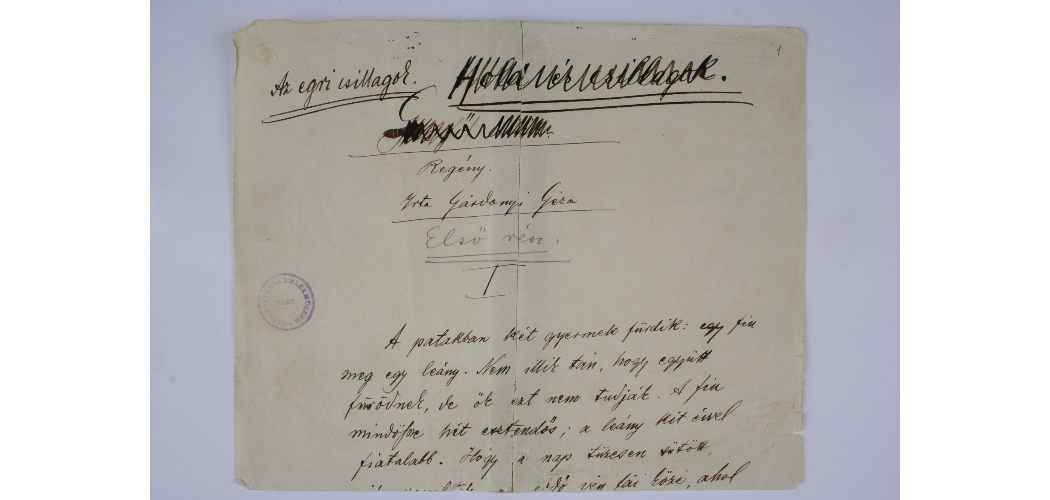 1
Az egri csillagok.
Regény.
Irta Gárdonyi Géza
Első rész.
I
A patakban két gyermek fürdik: egy fiu
meg egy leány. Nem illik tán, hogy együtt
fürödnek, de ők ezt nem tudják. A fiu
mindössze hét esztendős; a leány két évvel
fiatalabb. Hogy a nap tüzesen sütött,
vén fái közé, ahol